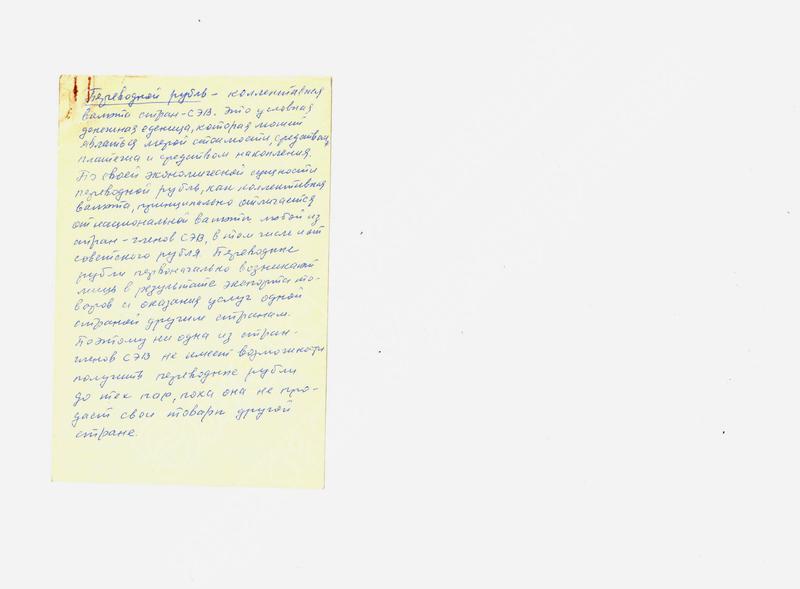 Переводной рубль - коллективная
валюта стран-СЭВ. Это условная
денежная еденица, которая может
являться мерой стоимости, средством
платежа и средством накопления.
По своей экономической сущности
переводной рубль, как коллективная
валюта, принципиально отличается
от национальной валюты любой из
стран-членов СЭВ, в том числе и от
советского рубля. Переводные
рубли первоначально возникают
лишь в результате экспорта то-
варов и оказания услуг одной
страной другим странам.
Поэтому ни одна из стран-
членов СЭВ не имеет возможности
получить переводные рубли
до тех пор, пока она не про-
даст свои товары другой
стране.